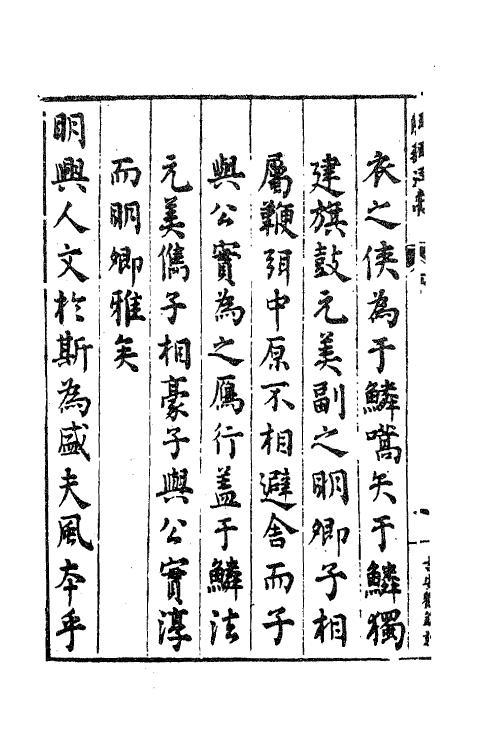 衣之俠為于鱗嚆矢于鱗獨
建旗鼓元美副之明卿子相
屬鞭弭中原不相避舍而子
與公實為之鴈行盖于鱗法
元美儁子相豪子與公實淳
而明卿雅矣
明興人文於斯為盛夫風夲乎